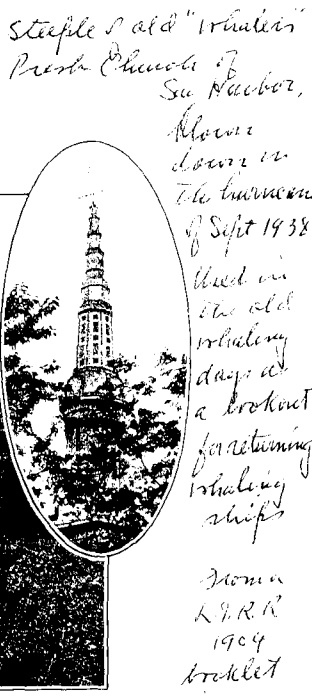 Steeple of old "Whalers"
Presb Church of
Sag Harbor,
blown
down in
the hurricane
of Sept 1938
Used in
the old
whaling
days as
a lookout
for returning
whaling
ships
From a
L.I.R.R
1904
booklet